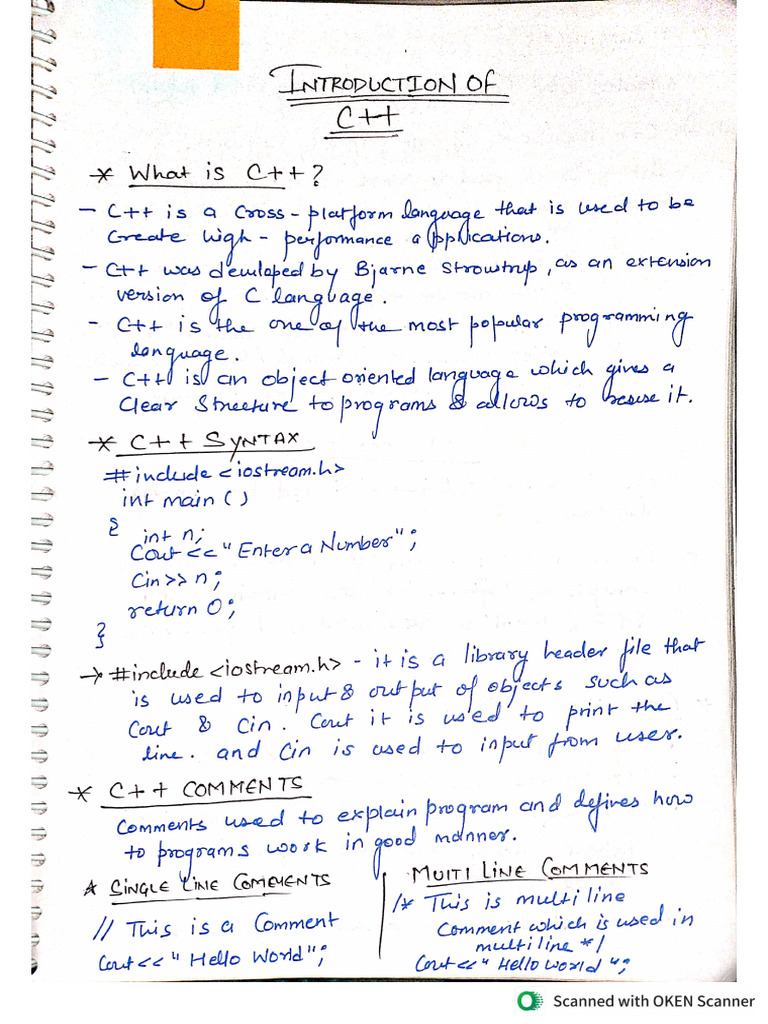 INTRODUCTION OF
C++
* What is C++?
- C++ is a cross-platform language that is used to be
Create high-performance applications.
- C++ was developed by Bjarne Stroustrup, as an extension
version of C language.
- C++ is the one of the most popular programming
language.
- C++ is an object oriented language which gives a
Clear Structure to programs & allows to resuse it.
* C++ SYNTAX
#include <iostream.h>
int main ()
{ int n;
Cout << "Enter a Number";
Cin >> n;
return 0;
}
→ #include <iostream.h> - it is a library header file that
is used to input & output of objects such as
Cout & Cin. Cout it is used to print the
line. and Cin is used to input from user.
* C++ COMMENTS
Comments used to explain program and defines how
to programs work in good manner.
* SINGLE LINE COMEMENTS
// This is a Comment
Cout << "Hello World";
MULTI LINE COMMENTS
/* This is multi line
Comment which is used in
multi line */
Cout << "Hello World";
Scanned with OKEN Scanner